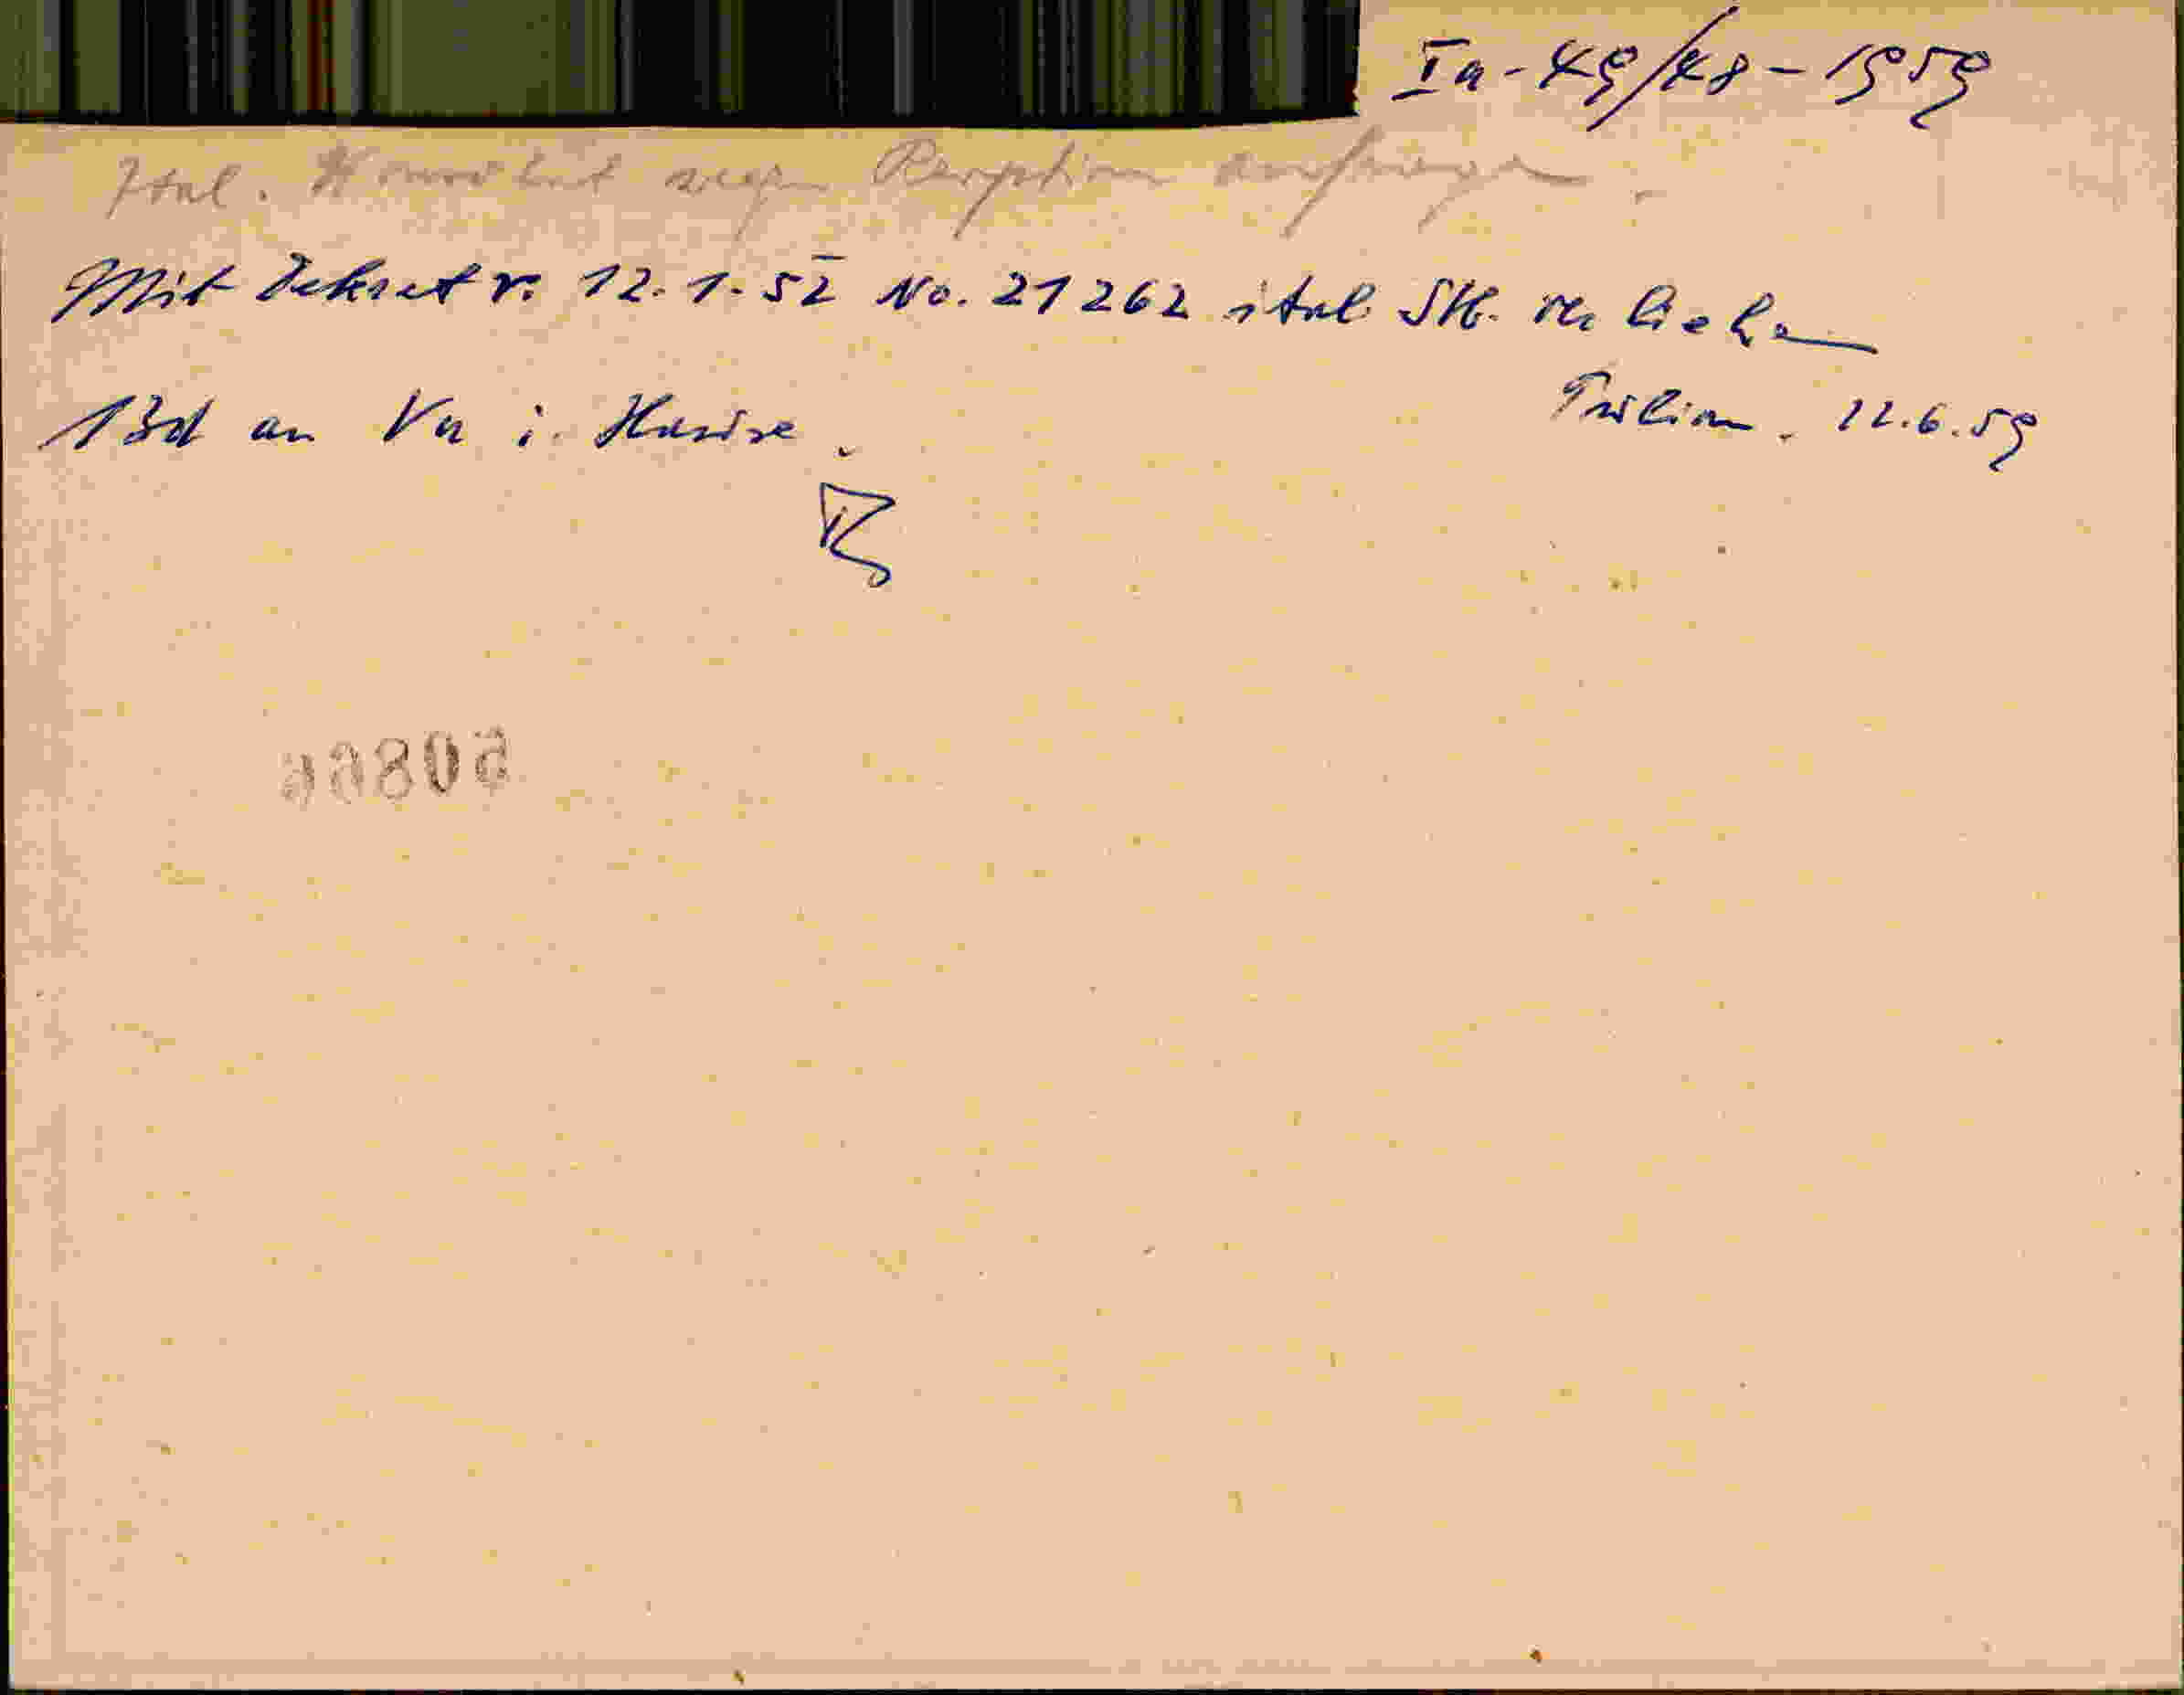 Ia-49/48-1959
Ital. Konsulat wegen Reoption anfragen.
Mit Dekret v. 12.1.52 No. 21262 ital. Stb. verliehen
Bd an Va i. Hause.
12.6.59